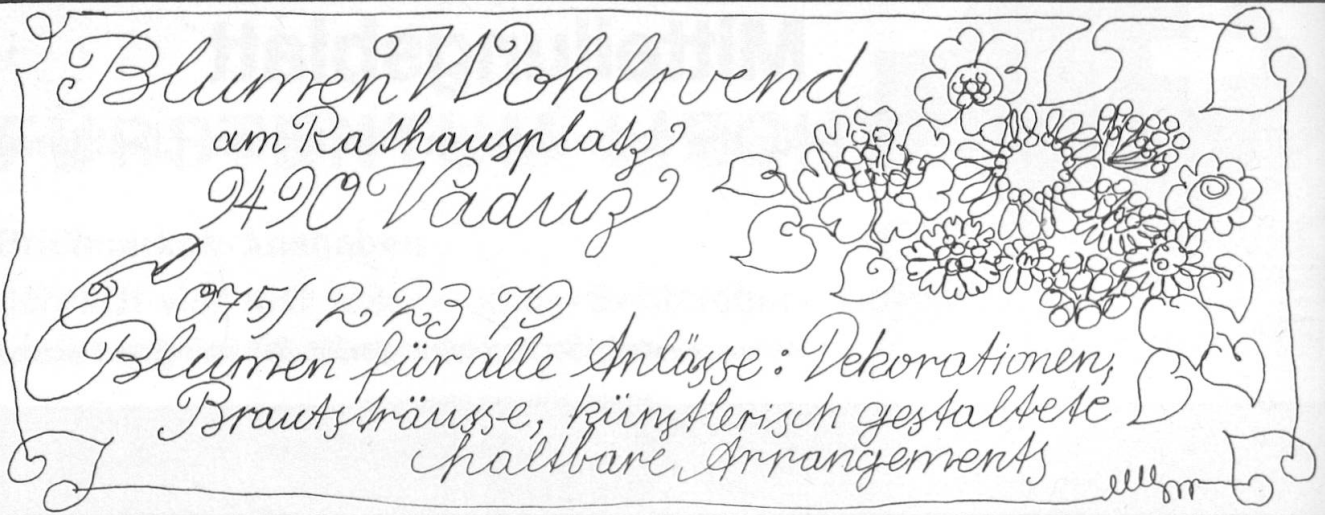 Blumen Wohlwend
am Rathausplatz
9490 Vaduz
075/2 23 79
Blumen für alle Anlässe: Dekorationen,
Brautsträusse, künstlerisch gestaltete
haltbare Arrangements